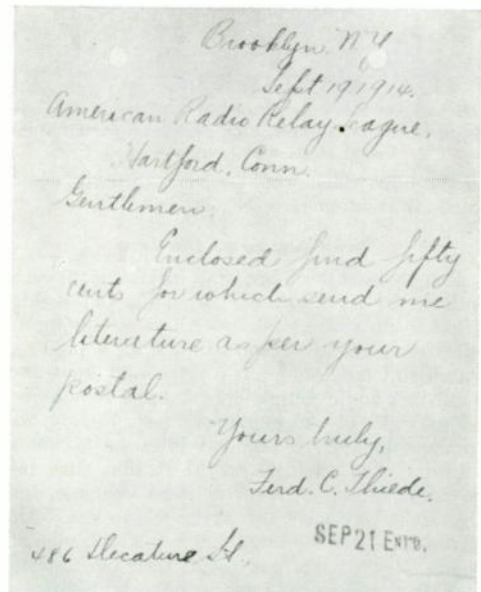 Brooklyn N.Y.
Sept 19 1914.
American Radio Relay League,
Hartford, Conn.
Gentlemen,
Enclosed find fifty
cents for which send me
literature as per your
postal.
Yours truly,
Ferd. C. Thiede.
486 Decature St.
SEP 21 ENT'D.